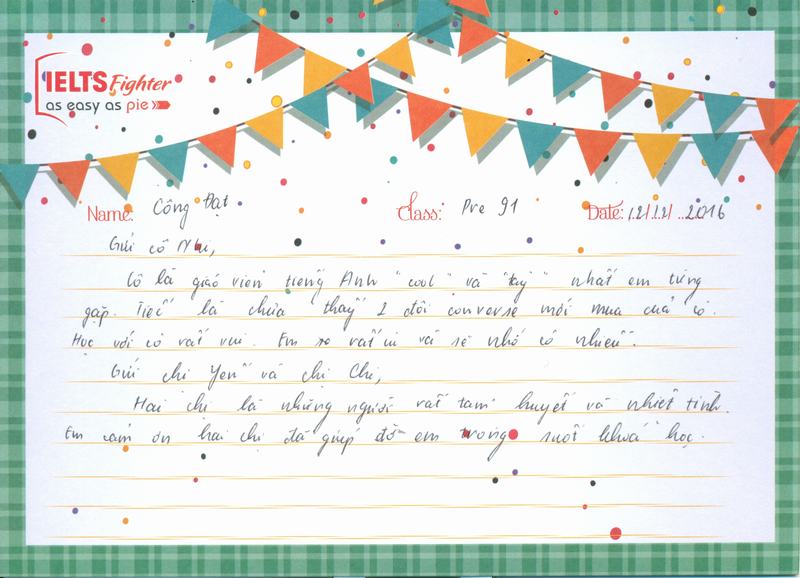 IELTS Fighter
as easy as pie
Name: Công Đạt Class: Pre 91 Date: 12/12/2016
Gửi cô Nhi,
Cô là giáo viên tiếng Anh "cool" và "tây" nhất em từng
gặp. Tiếc là chưa thấy 2 đôi converse mới mua của cô.
Học với cô rất vui. Em sẽ rất và sẽ nhớ cô nhiều.
Gửi chị Yến và chị Chi,
Hai chị là những người rất tâm huyết và nhiệt tình.
Em cảm ơn hai chị đã giúp đỡ em trong suốt khoá học.